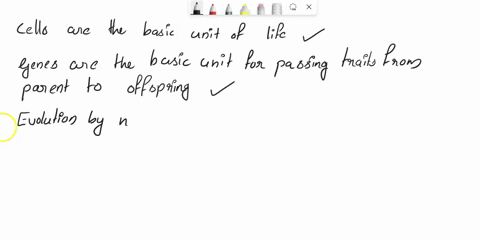 Cells are the basic unit of life ✓
Genes are the basic unit for passing traits from
parent to offspring ✓
Evolution by n